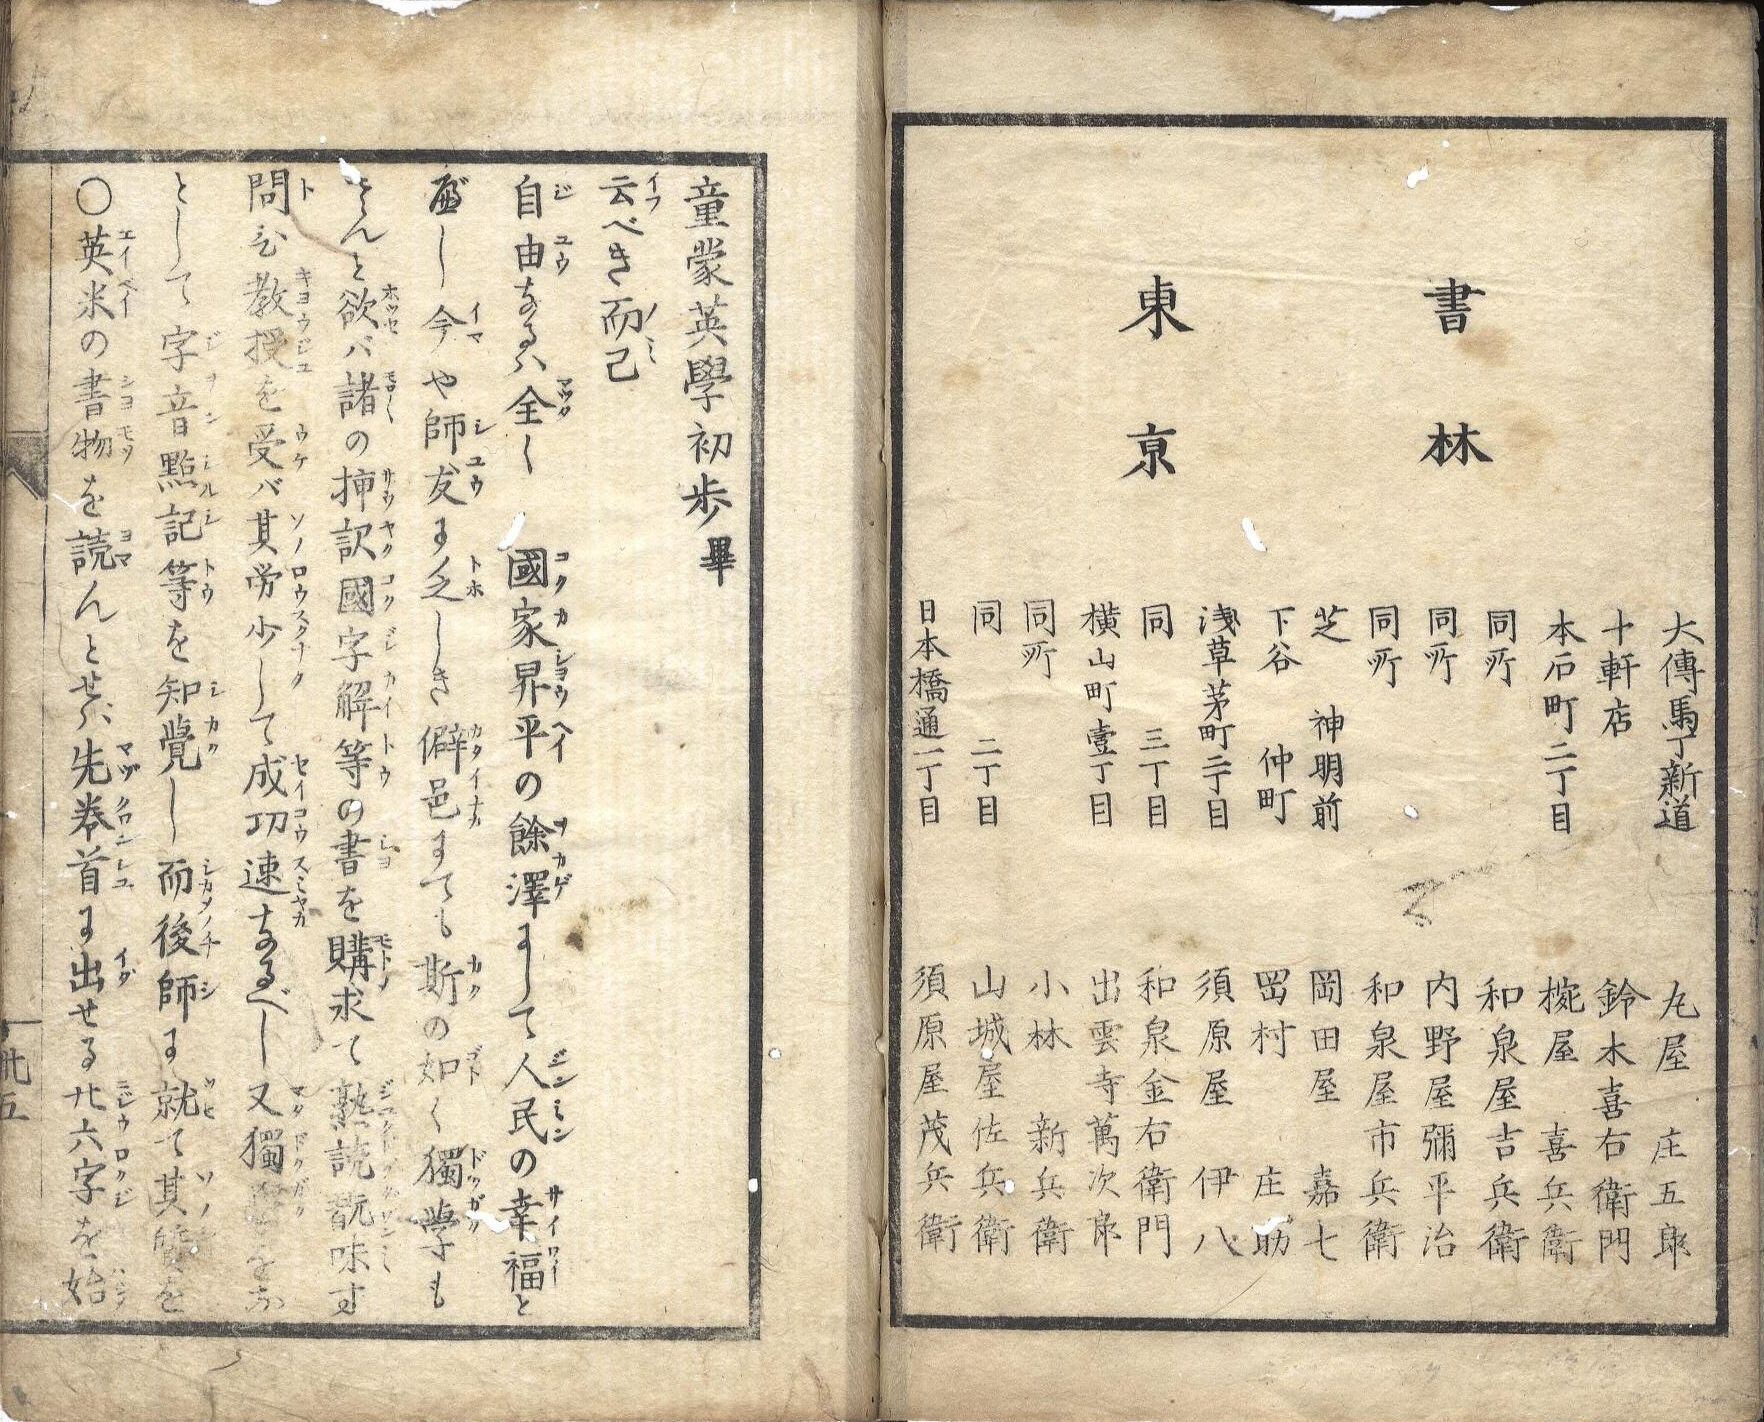 ○英米の書物を読んとせバ先巻首に出せる廿六字を始
として字音點記等を知覚し而後師に就て其質を
問ひ教授を受バ其労少して成功速なるべし又獨学をな
さんと欲バ諸の挿訳國字解等の書を購求て熟読翫味す
べし今や師友に乏しき僻邑までも斯の如く獨学も
自由なるハ全く 國家昇平の餘澤にして人民の幸福と
云べき而已
童蒙英學初歩畢
卅五
東京
書林
日本橋通一丁目 須原屋茂兵衛
同 二丁目 山城屋佐兵衛
同所 小林新兵衛
横山町壹丁目 出雲寺萬次郎
同 三丁目 和泉金右衛門
浅草茅町二丁目 須原屋伊八
下谷仲町 岡村庄助
芝神明前 岡田屋嘉七
同所 和泉屋市兵衛
同所 内野屋彌平治
同所 和泉屋吉兵衛
本石町二丁目 椀屋喜兵衛
十軒店 鈴木喜右衛門
大傳馬丁新道 丸屋庄五郎